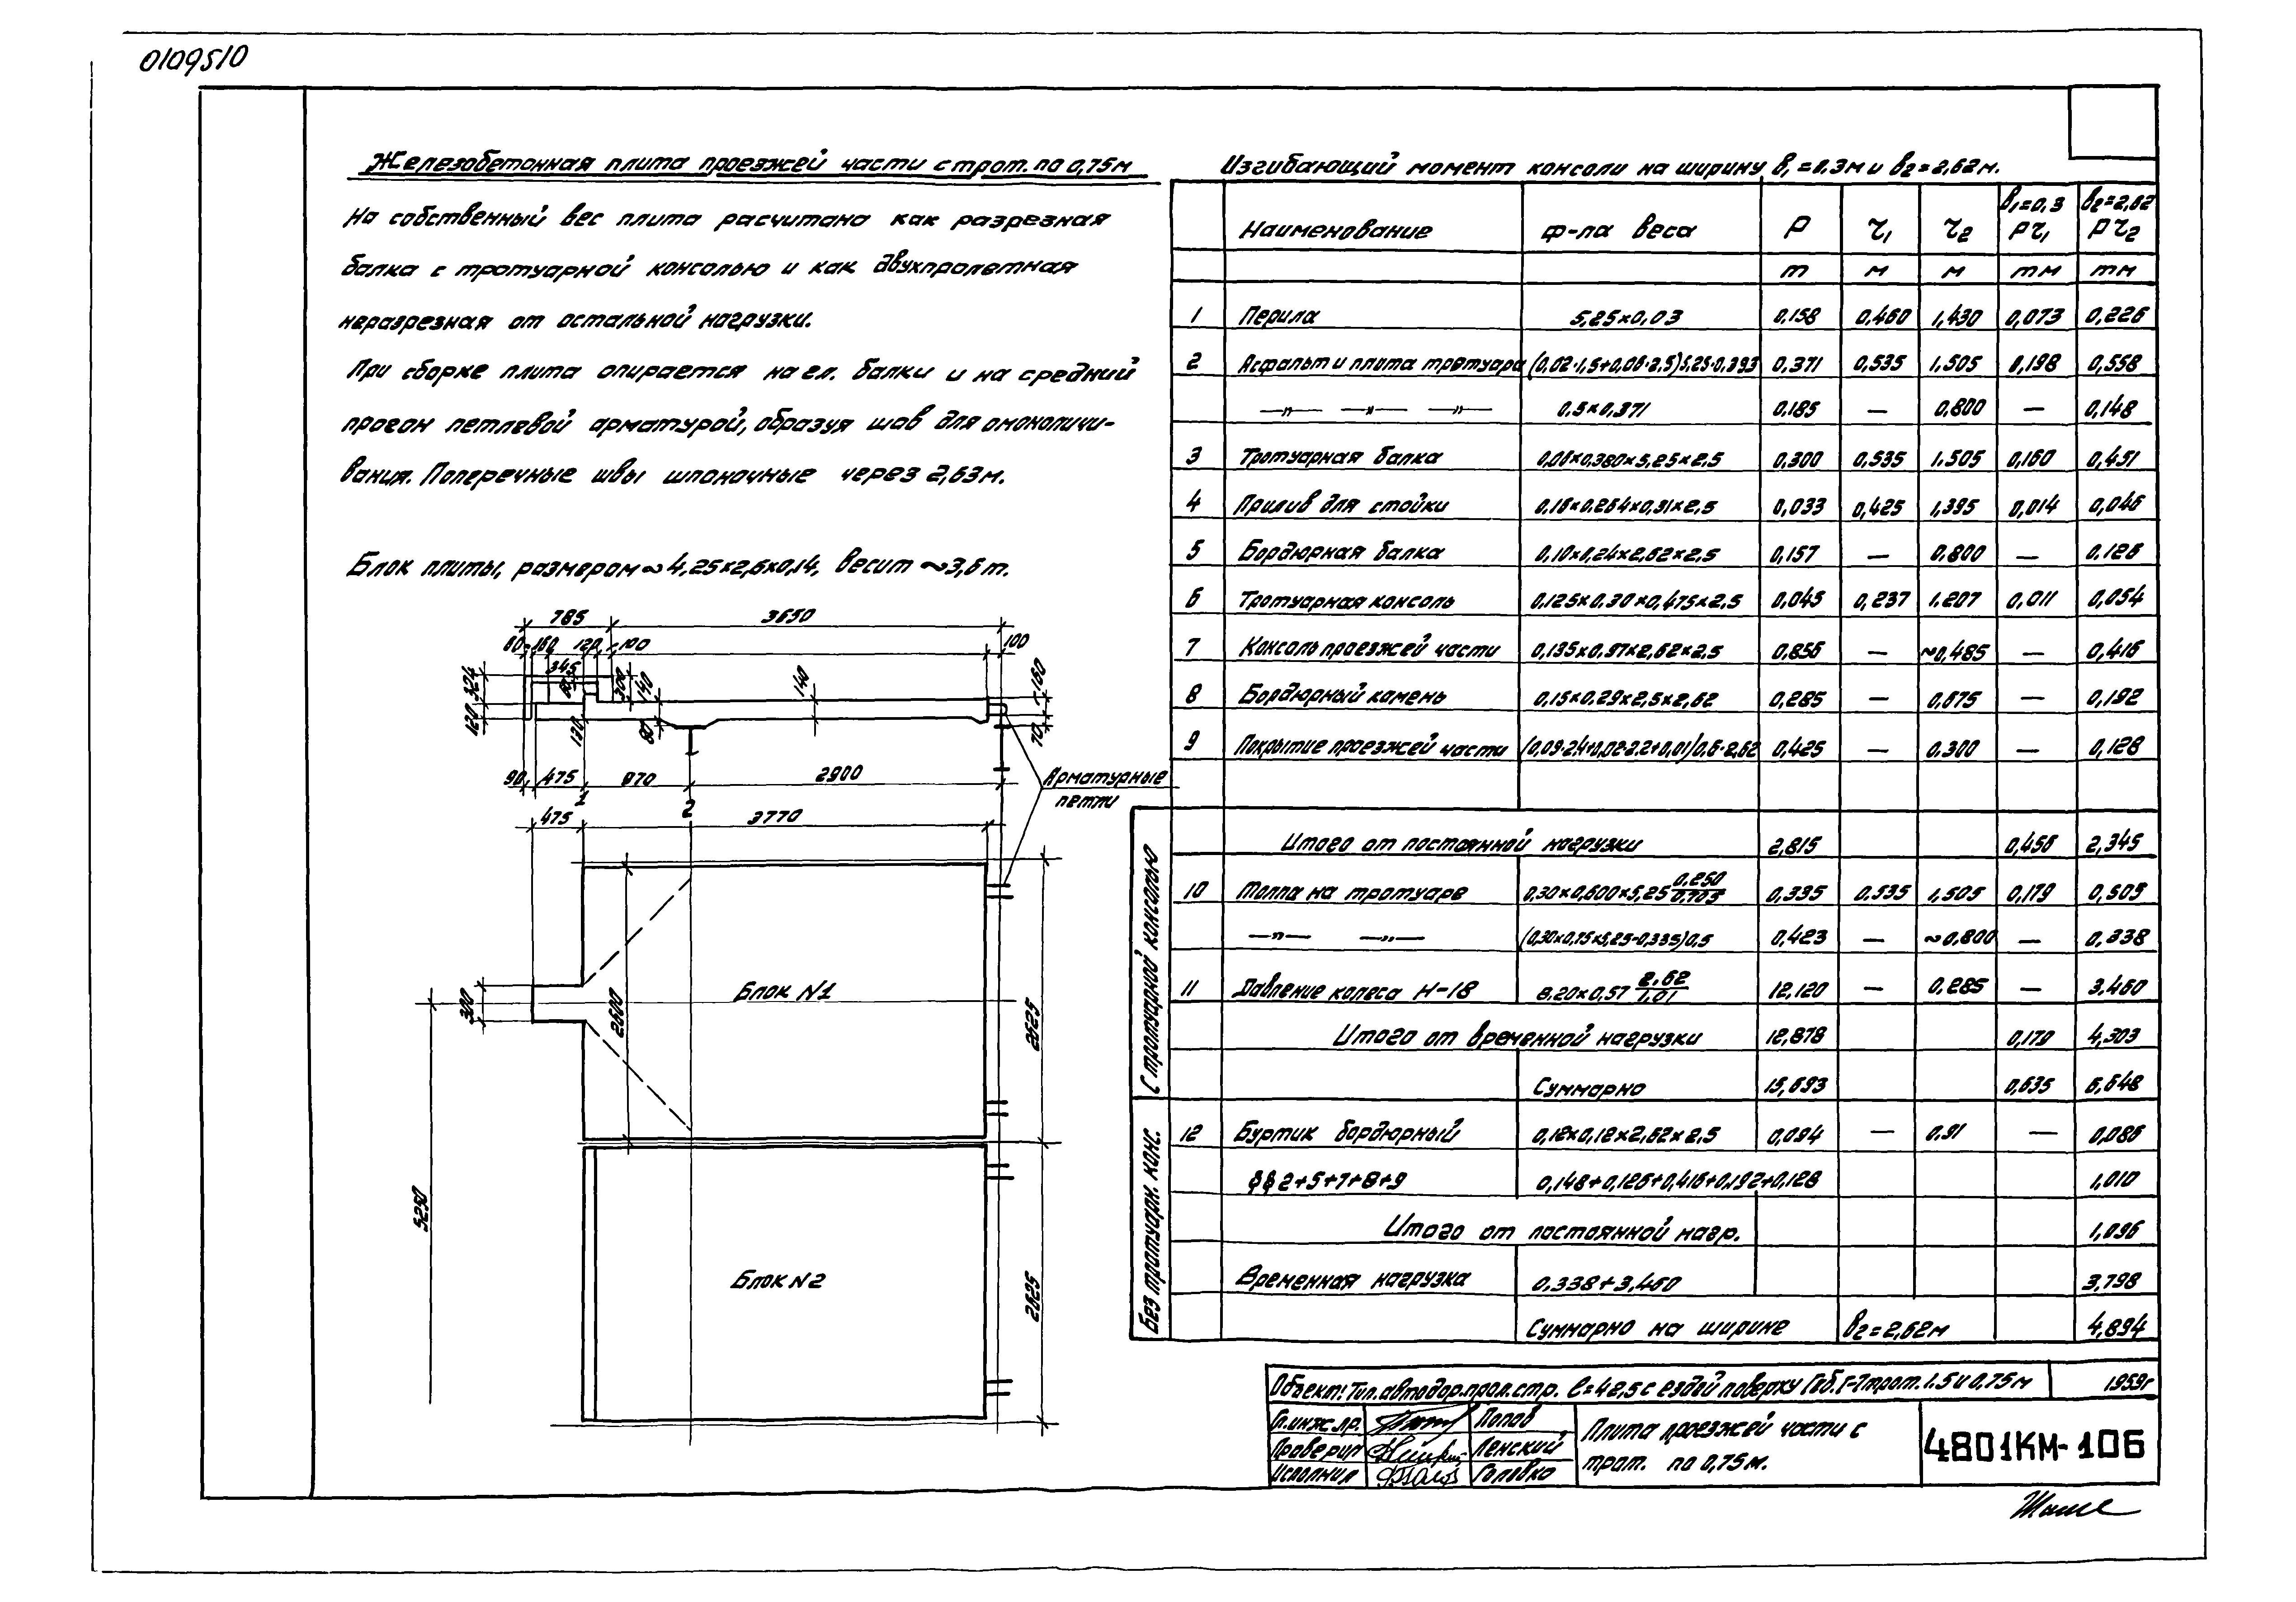 0109510
Железобетонная плита проезжей части с трот. по 0,75м
На собственный вес плита расчитана как разрезная
балка с тротуарной консолью и как двухпролетная
неразрезная от остальной нагрузки.
При сборке плита опирается на гл. балки и на средний
прогон петлевой арматурой, образуя шов для омоноличи-
вания. Поперечные швы шпоночные через 2,63м.
Блок плиты, размером ~ 4,25×2,6×0,14, весит ~3,6т.
785 3650
60 160 120 100 100
345
324 300 140 140 160
120 130 80 70
90 475 870 2900
1 2
Арматурные
петли
475 3770
Блок N1
300 2600 2625
5250
Блок N2
2625
Изгибающий момент консоли на ширину в₁=0,3м и в₂=2,62м.
Наименование ф-ла веса Р τ₁ τ₂ в₁=0,3 Рτ₁ в₂=2,62 Рτ₂
т м м тм тм
1 Перила 5,25×0,03 0,158 0,460 1,430 0,073 0,226
2 Асфальт и плита тротуара (0,02·1,5+0,06·2,5)5,25·0,393 0,371 0,535 1,505 0,198 0,558
—"— —"— —"— 0,5×0,371 0,185 — 0,800 — 0,148
3 Тротуарная балка 0,06×0,380×5,25×2,5 0,300 0,535 1,505 0,160 0,451
4 Прилив для стойки 0,16×0,264×0,31×2,5 0,033 0,425 1,395 0,014 0,046
5 Бордюрная балка 0,10×0,24×2,62×2,5 0,157 — 0,800 — 0,126
6 Тротуарная консоль 0,125×0,30×0,475×2,5 0,045 0,237 1,207 0,011 0,054
7 Консоль проезжей части 0,135×0,97×2,62×2,5 0,856 — ~0,485 — 0,416
8 Бордюрный камень 0,15×0,29×2,5×2,62 0,285 — 0,675 — 0,192
9 Покрытие проезжей части (0,09·2,4+0,02·2,2+0,01)0,6·2,62 0,425 — 0,300 — 0,128
С тротуарной консолью
Итого от постоянной нагрузки 2,815 0,456 2,345
10 Толпа на тротуаре 0,30×0,600×5,25 0,250/0,705 0,335 0,535 1,505 0,179 0,505
—"— —"— (0,30×0,75×5,25-0,335)0,5 0,423 — ~0,800 — 0,338
11 Давление колеса Н-18 8,20×0,57 2,62/1,01 12,120 — 0,285 — 3,460
Итого от временной нагрузки 12,878 0,179 4,303
Суммарно 15,693 0,635 6,648
Без тротуарн. конс.
12 Буртик бордюрный 0,12×0,12×2,62×2,5 0,094 — 0,91 — 0,086
§§ 2+5+7+8+9 0,148+0,126+0,416+0,192+0,128 1,010
Итого от постоянной нагр. 1,096
Временная нагрузка 0,338+3,460 3,798
Суммарно на ширине в₂=2,62м 4,894
Объект: Тип. автодор. прол. стр. ℓ=42,5 с ездой поверху Габ. Г-7 трот. 1.5 и 0,75м 1959г
Гл. инж. пр. Попов
Проверил Ленский
Исполнил Головко
Плита проезжей части с
трот. по 0,75м.
4801КМ-106